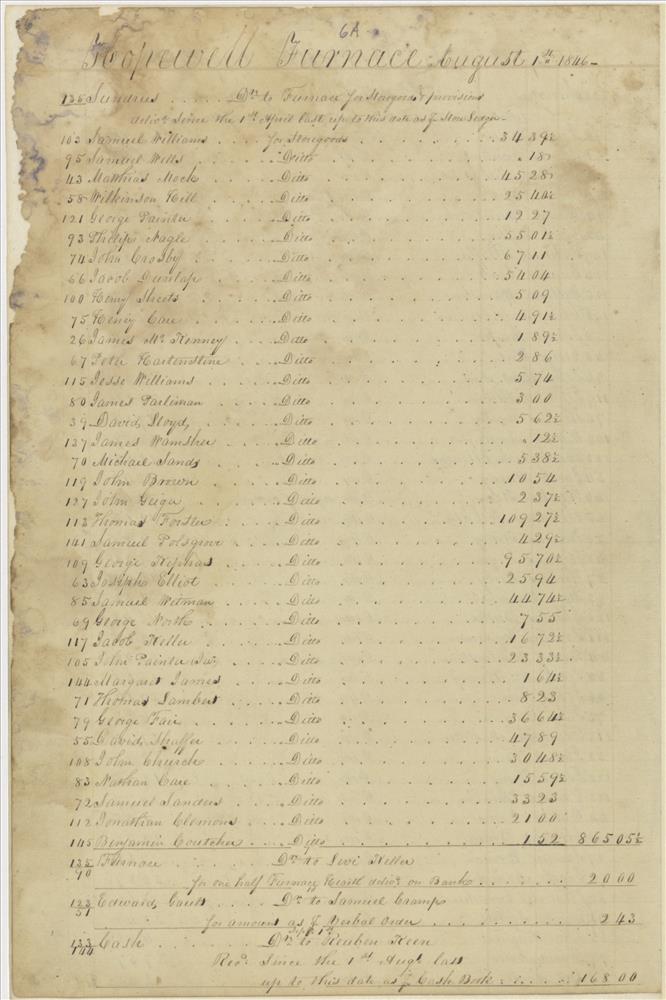 6A
Hopewell Furnace August 1st 1846
135 Sundries Drs to Furnace for Storegoods & provisions
delivd. since the 1st April last up to this date as p Store Ledger
103 Samuel Williams for Storegoods 34 39½
95 Samuel Wells Ditto . 18
43 Matthias Mock Ditto 45 28
58 Wilkinson Hill Ditto 25 40½
121 George Painter Ditto 12 27
93 Philip Nagle Ditto 55 01½
74 John Crosby Ditto 67 11
66 Jacob Dunlap Ditto 54 04
100 Henry Sheets Ditto 5 09
75 Henry Care Ditto 4 91½
26 James Mc Kenney Ditto 1 89½
67 Peter Hartenstine Ditto 2 86
115 Jesse Williams Ditto 5 74
80 James Parliman Ditto 3 00
39 David Lloyd Ditto 5 62½
137 James Wamsher Ditto . 12½
70 Michael Sands Ditto 5 38½
119 John Brown Ditto 10 54
127 John Geiger Ditto 2 37½
113 Thomas Forster Ditto 109 27½
141 Samuel Polsgrove Ditto 4 29½
109 George Ditto 95 70½
63 Joseph Elliot Ditto 25 94
85 Samuel Wetman Ditto 44 74½
69 George North Ditto 7 55
117 Jacob Heller Ditto 16 72½
105 John Painter Jur. Ditto 23 33½
144 Margaret James Ditto 1 64½
71 Thomas Lambert Ditto 8 23
79 George Fair Ditto 36 64½
55 David Shaffer Ditto 47 89
108 John Church Ditto 30 48½
83 Nathan Care Ditto 15 59½
72 Samuel Sanders Ditto 33 23
112 Jonathan Clemons Ditto 21 00
145 Benjamin Coutcher Ditto 1 52 865 05½
135 Furnace Dr to Levi Heller
70
for one half Furnace Hearth delivd. on Bank 20 00
123 Edward Dr to Samuel Cramp
51
for amount as p Verbal Order 2 43
Sept 1st
133 Cash Dr to Reuben Keen
144
Recd. Since the 1st Augt. last
up to this date as p Cash Book 168 00